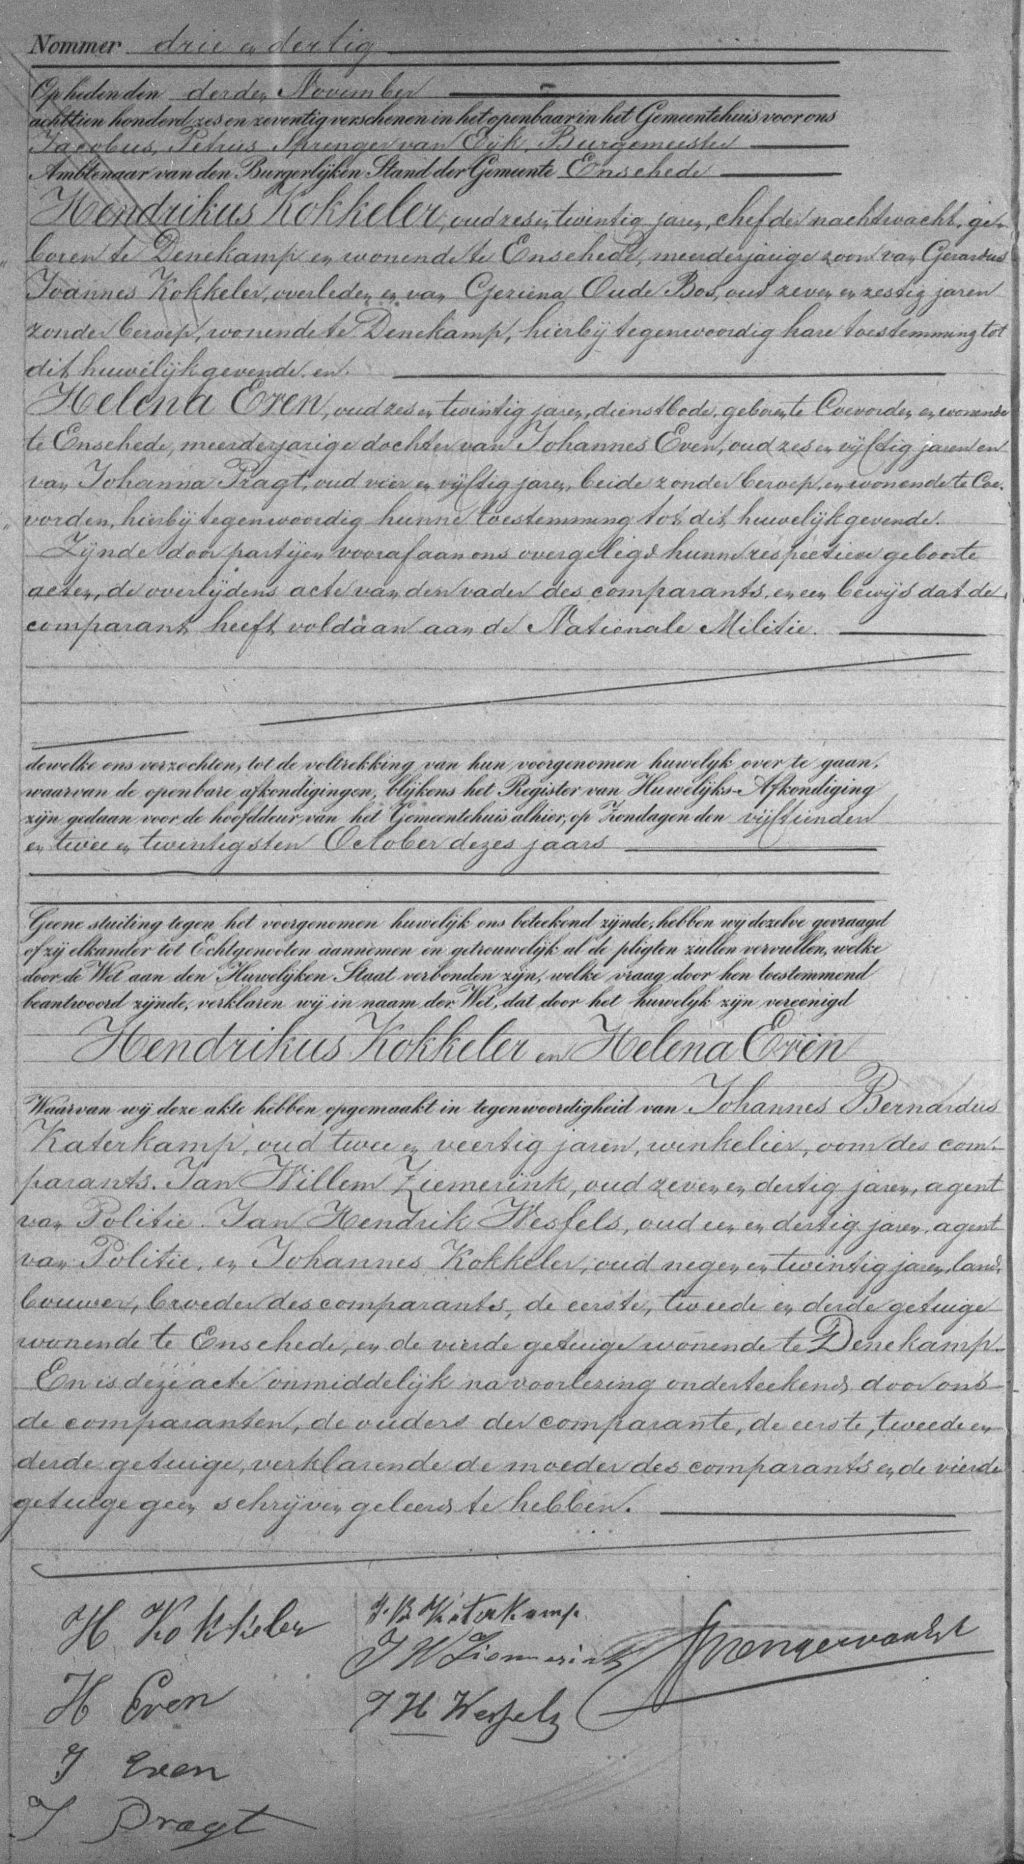 Nommer drie en dertig
Op heden den derden November
achttien honderd zes en zeventig verschenen in het openbaar in het Gemeentehuis voor ons
Jacobus, Petrus Sprenger van Eijk, Burgemeester
Ambtenaar van den Burgerlijken Stand der Gemeente Enschede
Hendrikus Kokkeler, oud zes en twintig jaren, chef der nachtwacht, ge-
boren te Denekamp en wonende te Enschede, meerderjarige zoon van Gerardus
Joannes Kokkeler, overleden, en van Geziena Oude Bos, oud zeven en zestig jaren
zonder beroep, wonende te Denekamp, hierbij tegenwoordig hare toestemming tot
dit huwelijk gevende, en
Helena Even, oud zes en twintig jaren, dienstbode, geboren te Coevorden en wonende
te Enschede, meerderjarige dochter van Johannes Even, oud zes en vijftig jaren en
van Johanna Pragt, oud vier en vijftig jaren, beide zonder beroep, en wonende te Coe-
vorden, hierbij tegenwoordig hunne toestemming tot dit huwelijk gevende.
Zijnde door partijen vooraf aan ons overgelegd hunne respectieve geboorte
acten, de overlijdens acte van den vader des comparants, en een bewijs dat de
comparant heeft voldaan aan de Nationale Militie.
dewelke ons verzochten, tot de voltrekking van hun voorgenomen huwelyk over te gaan,
waarvan de openbare afkondigingen, blijkens het Register van Huwelijks-Afkondiging
zijn gedaan voor de hoofddeur van het Gemeentehuis alhier, op Zondagen den vijftienden
en twee en twintigsten October dezes jaars
Geene stuiting tegen het voorgenomen huwelijk ons beteekend zijnde, hebben wij dezelve gevraagd
of zij elkander tot Echtgenooten aannemen en getrouwelijk al de pligten zullen vervullen, welke
door de Wet aan den Huwelijken Staat verbonden zijn, welke vraag door hen toestemmend
beantwoord zijnde, verklaren wij in naam der Wet, dat door het huwelyk zijn vereenigd
Hendrikus Kokkeler en Helena Even
Waarvan wij deze akte hebben opgemaakt in tegenwoordigheid van Johannes Bernardus
Katerkamp, oud twee en veertig jaren, winkelier, oom des com-
parants. Jan Willem Ziemerink, oud zeven en dertig jaren, agent
van Politie. Jan Hendrik Wessels, oud een en dertig jaren, agent
van Politie, en Johannes Kokkeler, oud negen en twintig jaren, land-
bouwer, broeder des comparantes, de eerste, tweede en derde getuige
wonende te Enschede, en de vierde getuige wonende te Denekamp.
En is deze acte onmiddelijk na voorlezing onderteekend door ons
de comparanten, de ouders der comparante, de eerste, tweede en
derde getuige, verklarende de moeder des comparants en de vierde
getuige geen schrijven geleerd te hebben.
H Kokkeler
H Even
J Even
J Pragt
J. B Katerkamp
J W Ziemerink
J H Wessels
Sprengervaneyk